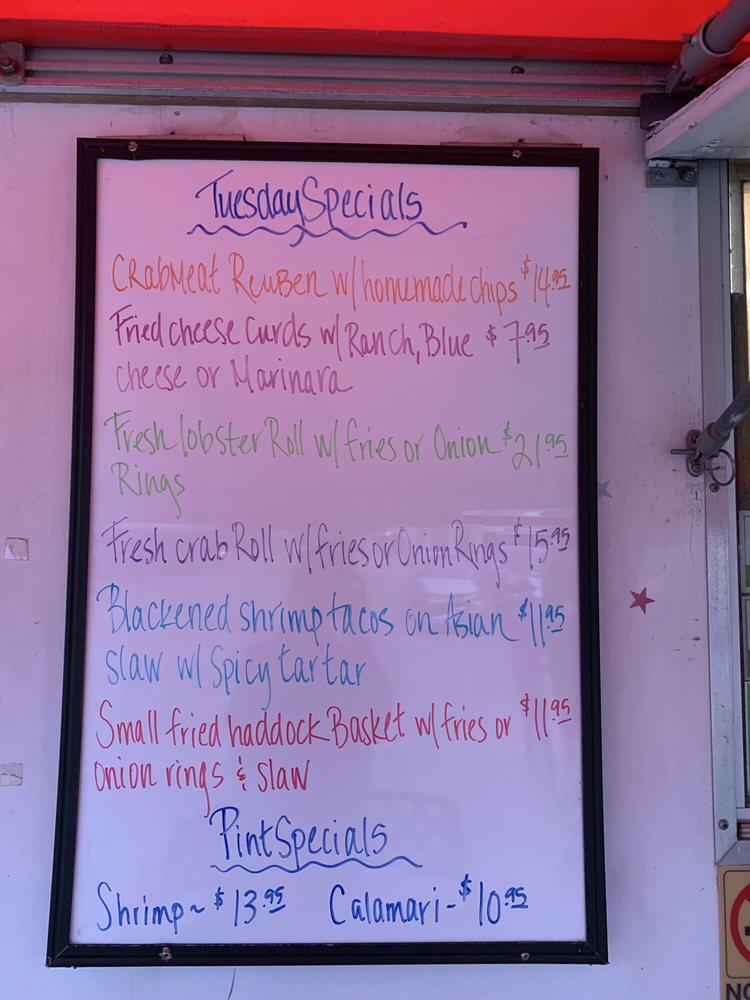 Tuesday Specials
CrabMeat Reuben w/ homemade chips $14.95
Fried cheese curds w/ Ranch, Blue $7.95
cheese or Marinara
Fresh lobster Roll w/ fries or Onion $21.95
Rings
Fresh crab Roll w/ fries or Onion Rings $15.95
Blackened shrimp tacos on Asian $11.95
slaw w/ Spicy tartar
Small fried haddock Basket w/ fries or $11.95
onion rings & slaw
Pint Specials
Shrimp ~ $13.95 Calamari - $10.95
NO